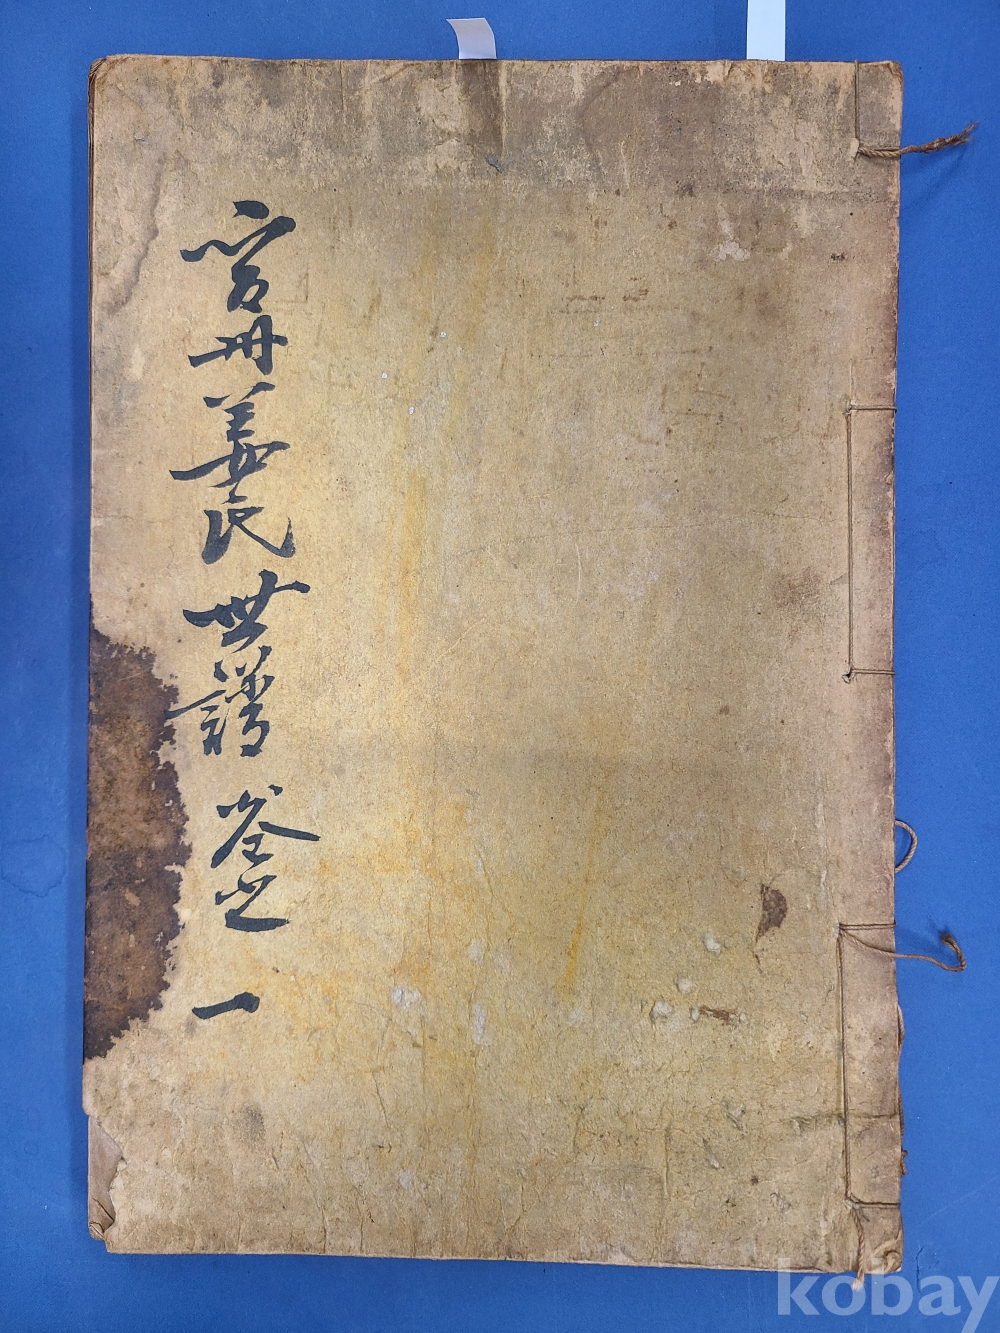 晉州姜氏世譜 卷之一
kobay